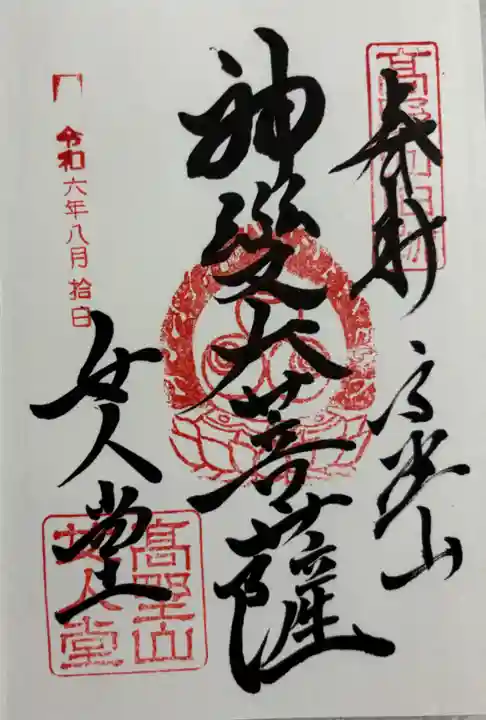 奉拝
高野山
神變大菩薩
女人堂
令和六年八月拾日
高野山
女人堂